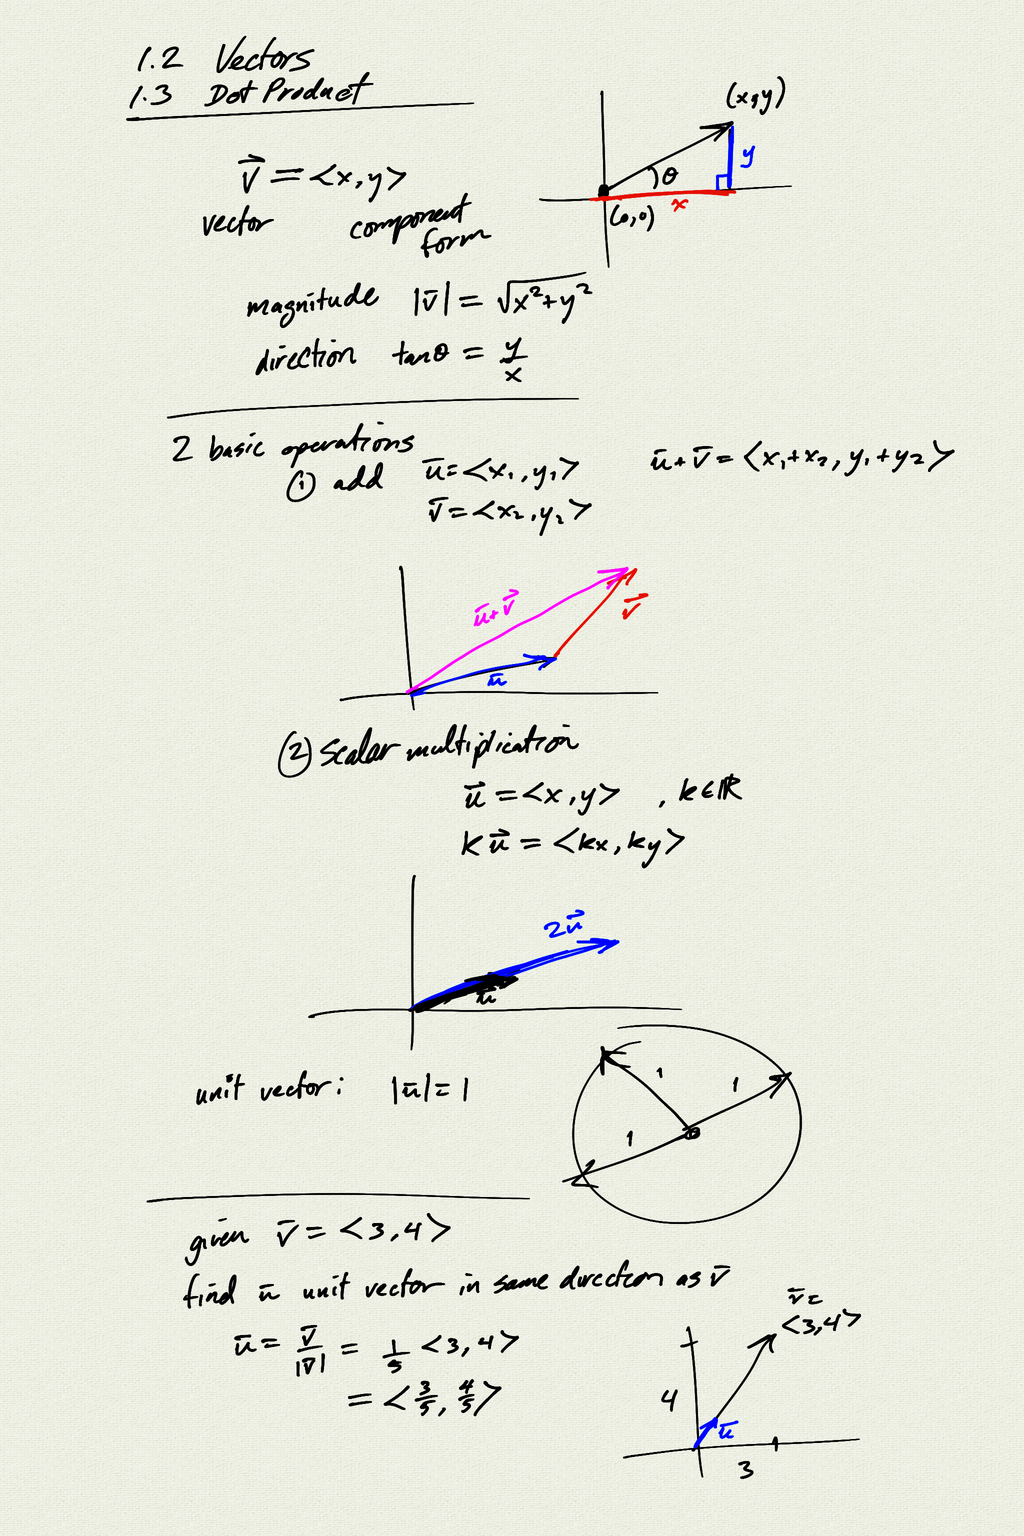 1.2 Vectors
1.3 Dot Product
(x,y)
y
θ
x
(0,0)
v⃗ = <x,y>
vector component form
magnitude |v̄| = √x²+y²
direction tanθ = y/x
2 basic operations
① add ū = <x₁,y₁> ū+v̄ = <x₁+x₂, y₁+y₂>
v̄ = <x₂,y₂>
ū+v⃗
v⃗
ū
② scalar multiplication
u⃗ = <x,y> , k∈ℝ
ku⃗ = <kx, ky>
2u⃗
ū
unit vector: |ū| = 1
1 1
1
given v̄ = <3,4>
find ū unit vector in same direction as v̄
ū = v̄/|v̄| = 1/5 <3,4>
= <3/5, 4/5>
v̄ =
<3,4>
4
ū
3